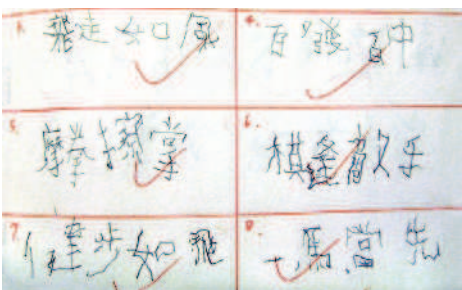 飛走如風
4. 百發百中
5. 摩拳擦掌
6. 棋逢敵手
7. 健步如飛
8. 一馬當先